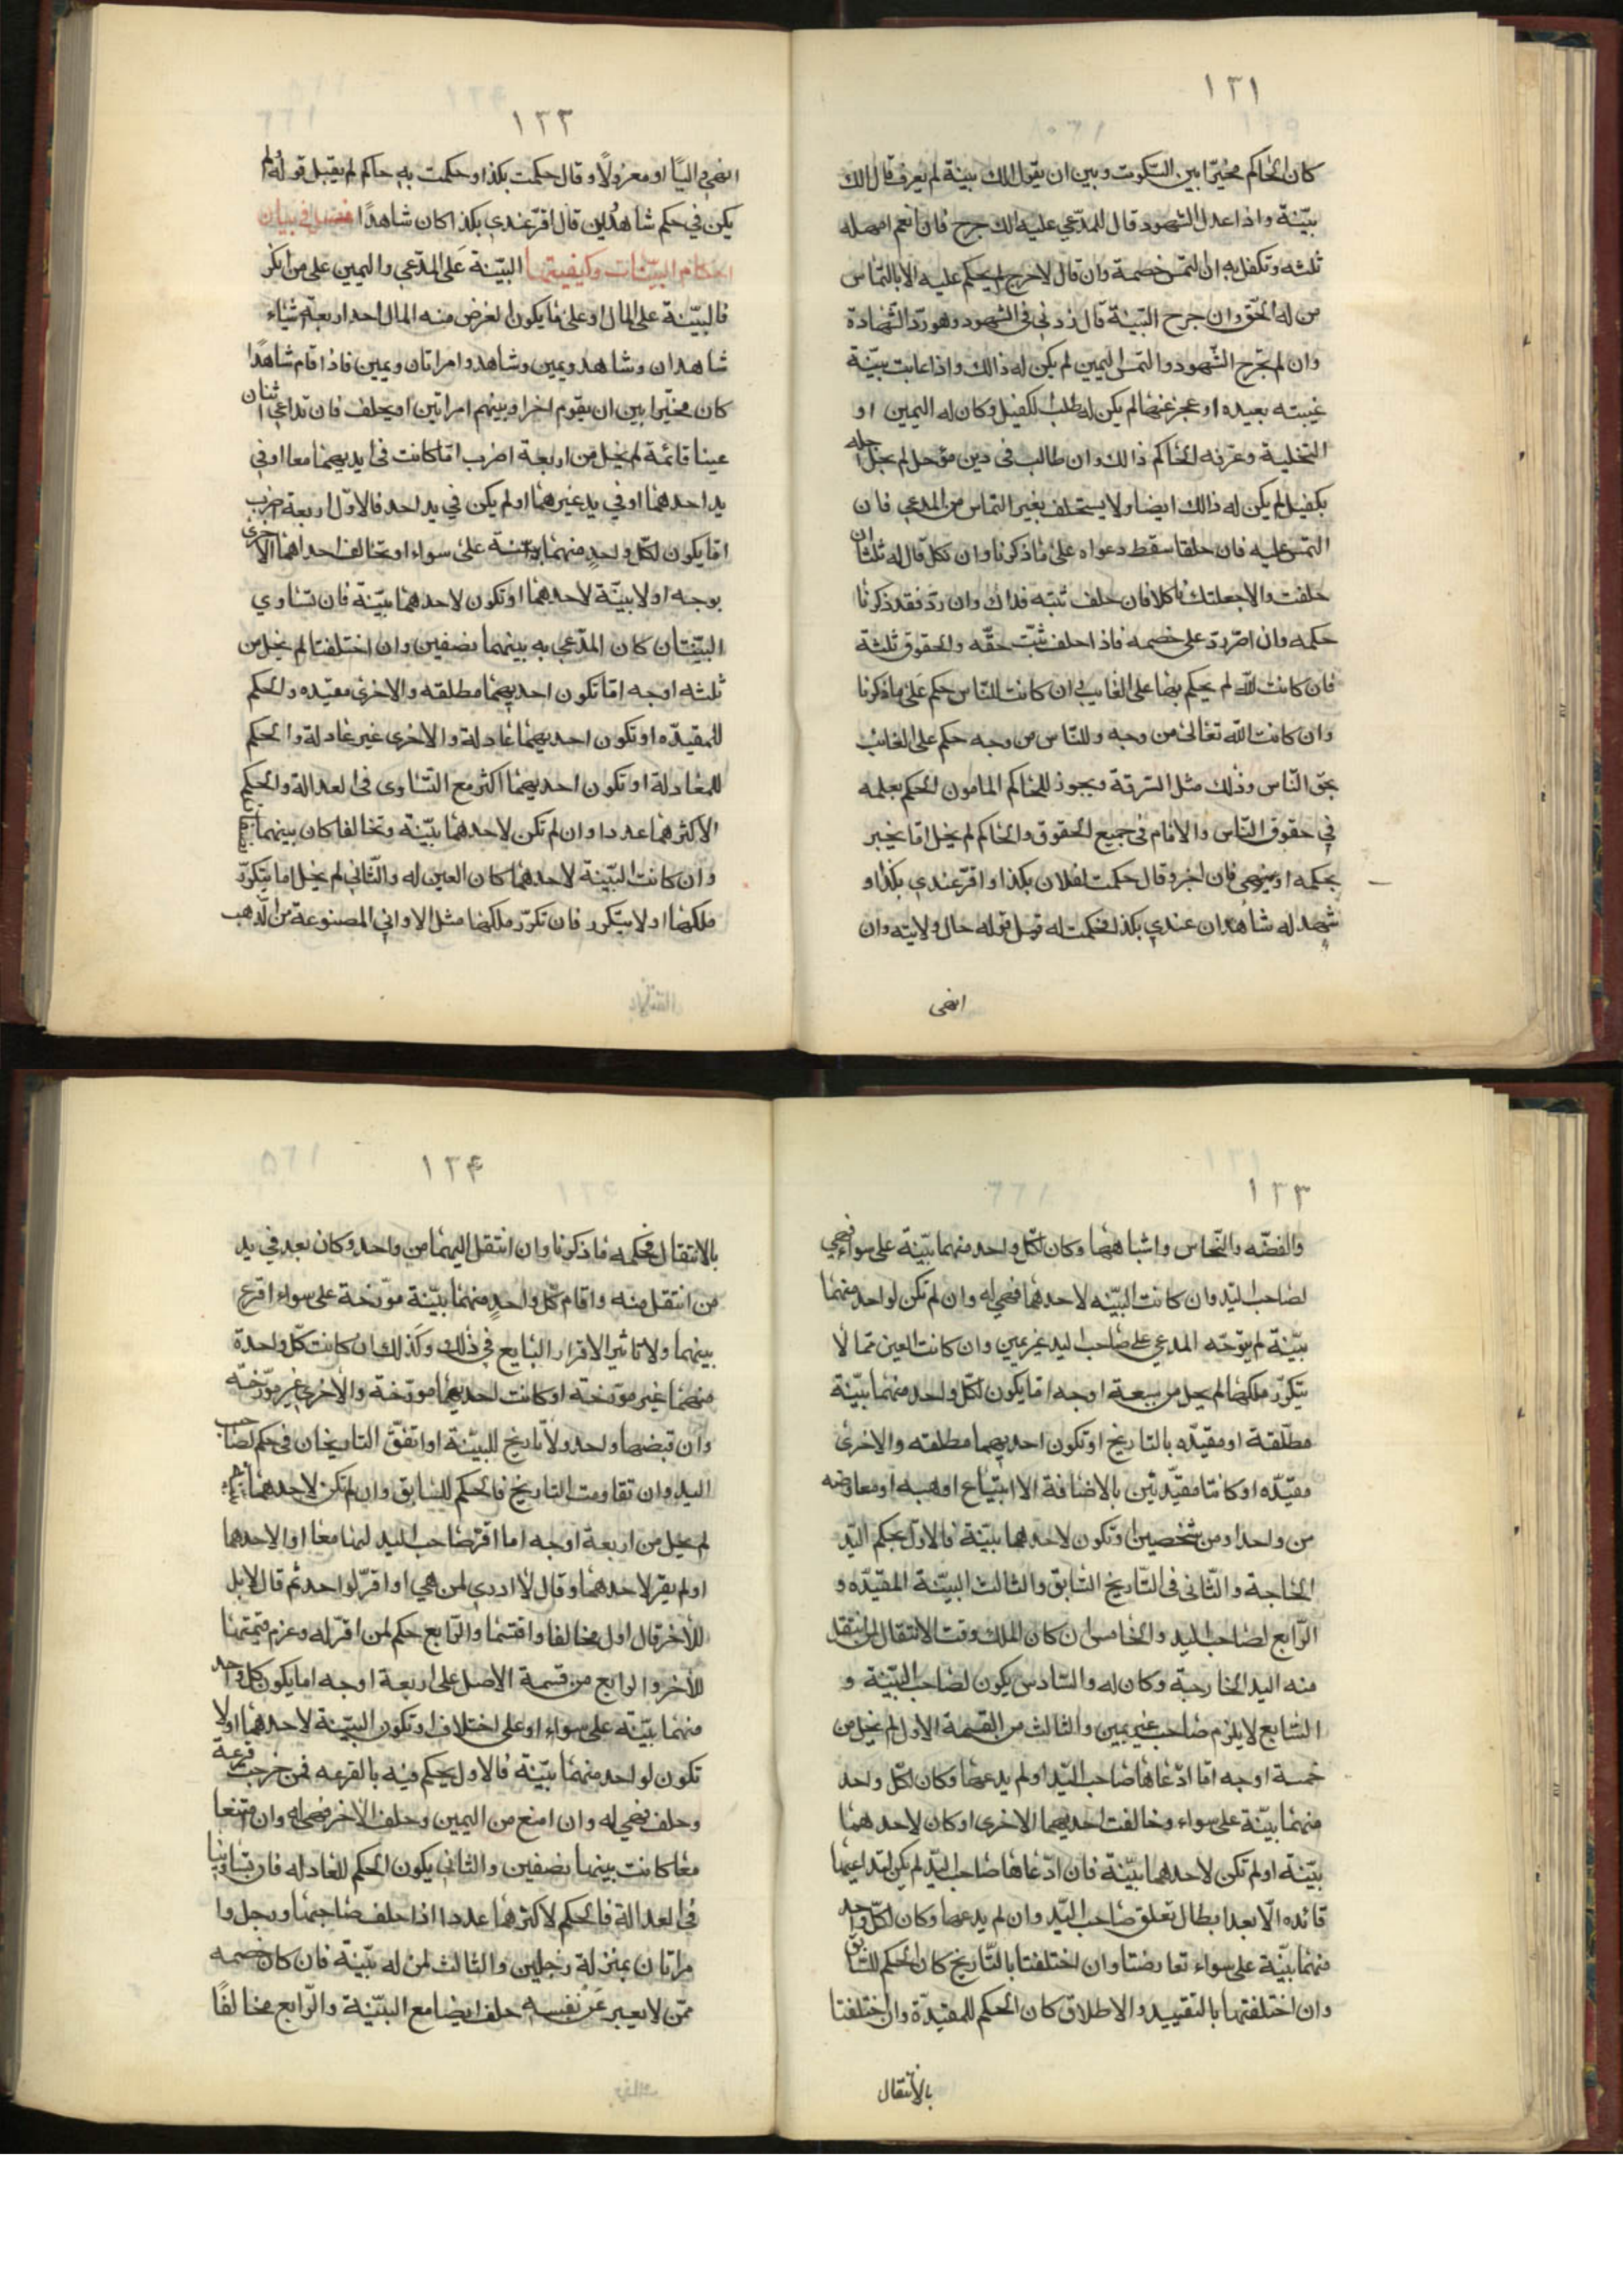 ١٣١
كان الحاكم مخيّرا بين السّكوت وبين ان يقول الك بينة لم يعرف قال الك
بيّنة واذا عدل الشهود قال للمدّعي عليه الك جرح فان نعم امهله
ثلثه وتكفل به ان التمس خصمة وان قال لا حرج لم يحكم عليه الا بالتماس
من له الحّق وان جرح البّينة قال زدني في الشهود وهو ردّ الشّهادة
وان لم يجّرح الشّهود والتمس اليمين لم يكن له ذالك واذا غابت بيّنة
غيبته بعيده او عجز عنها لم يكن له طلب الكفيل وكان له اليمين او
التخلية وعرّفه الحاكم ذالك وان طالب فى دين مؤجل لم يحل اجله
بكفيل لم يكن له ذالك ايضا ولا يستحلف بغير التماس من المدعي فان
التمس عليه فان حلفا سقط دعواه على ما ذكرنا وان نكل قال له ثلثا ان
حلفت والا جعلتك ناكلا فان حلف ثبته فذاك وان ردّ فقد ذكرنا
حكمه وان اصّر ردّ على خصمه فاذا احلف ثبّت حقّه والحقوق ثلثة
فان كانت للّه لم يحكم بها على الغايب ان كانت للنّاس حكم على ما ذكرنا
وان كانت الله تعالى من وجه وللنّاس من وجه حكم على الغائب
بحّق النّاس وذلك مثل السّرقة ويجوز للحاكم المامون الحكم بعلمه
في حقوق النّاس والامام فى جميع الحقوق والحاكم لم يخل امّا يخبر
بحكمه او ينهى فان اخبر وقال حكمت لفلان بكذا او اقرّ عندي بكذا و
شهد له شاهدان عندي بكذا فحكمت له قبل قوله حال ولايته وان
انهى
١٣٢
انهى اليّا او معزولاً وقال حكمت بكذا وحكمت به حاكم لم يقبل قوله لم
يكن في حكم شاهدين قال اقرّ عندي بكذا كان شاهدًا فصل في بيان
احكام البيّنات وكيفيتها البيّنة على المدّعي واليمين على من انكر
فالبيّنة على المال او على ما يكون الغرض منه المال احد اربعة اشياء
شاهدان وشاهد ويمين وشاهد وامراتان ويمين فاذا قام شاهدًا
كان مخيّرا بين ان يقوم اخرا وبينهم امراتين او يحلف فان تداعى اثنان
عينا قائمة لم يخل من اربعة اضرب امّا كانت فى ايديهما معا او في
يد احدهما او في يد غيرهما او لم يكن في يد احد فالاوّل اربعة اضرب
امّا يكون لكلّ واحدٍ منهما بيّنة على سواء او تخالف احداهما الاخرى
بوجه او لا بيّنة لاحدهما او تكون لاحدهما بيّنة فان تساوي
البيّنتان كان المدّعي به بينهما نصفين وان اختلفتا لم يخل من
ثلثه اوجه امّا تكون احديهما مطلقه والاخرى مقيّده والحكم
للمقيدّه او تكون احديهما عادلة والاخرى غير عادلة والحكم
للعادلة او تكون احديهما اكثر مع التّساوى فى العدالة والحكم
الاكثرهما عددا وان لم تكن لاحدهما بيّنة وتخالفا كان بينهما
وان كانت البّينة لاحدهما كان العين له والثّاني لم يخل اما يتكرّر
ملكها او لا يتكرر فان تكرّر ملكها مثل الاواني المصنوعة من الذّهب
١٣٣
والفضّه والنّحاس واشباهها وكان لكّل واحد منهما بيّنة على سواء فهي
لصاحب اليّد وان كانت البيّنه لاحدهما فهي له وان لم تكن لواحد منهما
بيّنة لم يتوجّه المدعي على صاحب اليد غير يمين وان كانت العين ممّا لا
يتكرّر ملكها لم يخل من سبعة اوجه امّا يكون لكّل واحد منهما بيّنة
مطلّقة او مقيّده بالتاريخ او تكون احديهما مطلقه والاخرى
مقيّده او كانتا مقيّدتين بالاضافة الا ابتياع او هبه او معاوضه
من واحد او من شخصين او تكون لاحدهما بيّنة فالاول يحكم اليّد
الخاجة والثّانى فى التّاريخ السّابق والثالث البيّنة المقيّده و
الرّابع لصاحب اليد والخامس ان كان الملك وقت الانتقال لمن انتقل
منه اليد الخارجة وكان له والسّادس يكون لصاحب البّيّنة و
السّابع لا يلزم صاحب غير يمين والثالث من القسمة الاول لم يخل من
خمسة اوجه امّا ادّعاها صاحب اليّد او لم يدعها وكان لكّل واحد
منهما بيّنة على سواء وخالفت احديهما الاخرى او كان لاحدهما
بيّنة او لم تكن لاحدهما بيّنة فان ادّعاها صاحب اليّد لم يكن لتداعيهما
فائده الّا بعد ابطال تعلق صاحب اليّد وان لم يدعها وكان لكلّ واحد
منهما بيّنة على سواء تعارضتا وان اختلفتا بالتّاريخ كان الحكم للسّابق
وان اختلفتها بالتقييد والاطلاق كان الحكم للمقيدّة وان اختلفتا
بالأنتقال
١٣۴
بالانتقال فحكمه ما ذكرنا وان انتقل اليهما من واحد وكان بعد في يد
من انتقل منه واقام كّل واحدٍ منهما بيّنة مورّخة على سواء اقرع
بينهما ولا تاثير الاقرار البايع في ذلك وكذلك ان كانت كّل واحدة
منهما غير مورّخة او كانت احديهما مورّخة والاخرى غير مورّخة
وان قبضها واحد ولا تاريخ للبيّنة او اتفقّ التاريخان في حكم لصاحب
اليد وان تفاوت التاريخ فالحكم للسّابق وان لم تكن لاحدهما
لم يخل من اربعة اوجه اما اقرّ صاحب اليد لهما معا او الاحدهما
او لم يقر لاحدهما وقال لا ادري لمن هي او اقرّ لواحد ثم قال لا بل
للأخر قال اول تخالفا واقتسما والرّابع حكم لمن اقرّ له وغرم قيمتها
للأخر والرابع من قسمة الاصل على اربعة اوجه اما يكون كل واحد
منهما بيّنة على سواء او على اختلاف او تكون البيّنة لاحدهما او لا
تكون لواحد منهما بيّنة فالاول يحكم فيه بالقرعه فمن خرجت قرعة
وحلف فهي له وان امنع من اليمين وحلف الاخر فهي له وان امتنعا
معا كانت بينهما نصفين والثاني يكون الحكم للعادله فان تساويا
في العدالة فالحكم لاكثرهما عددا اذا حلف صاحبها ورجل وا
مراتان بمنزلة رجلين والثالث لمن له بيّنة فان كان خصمه
ممّن لا يعبر عن نفسه حلف ايضا مع البيّنة والرّابع مخالفًا